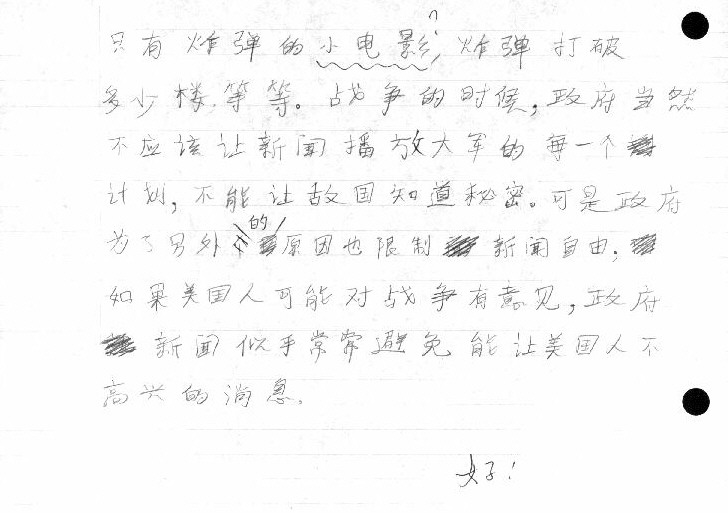 ?
只有炸弹的小电影,炸弹打破
多少楼,等等。战争的时候,政府当然
不应该让新闻播放大军的每一个
计划,不能让敌国知道秘密。可是政府
的
为了另外 原因也限制 新闻自由,
如果美国人可能对战争有意见,政府
新闻似乎常常避免能让美国人不
高兴的消息.
好!